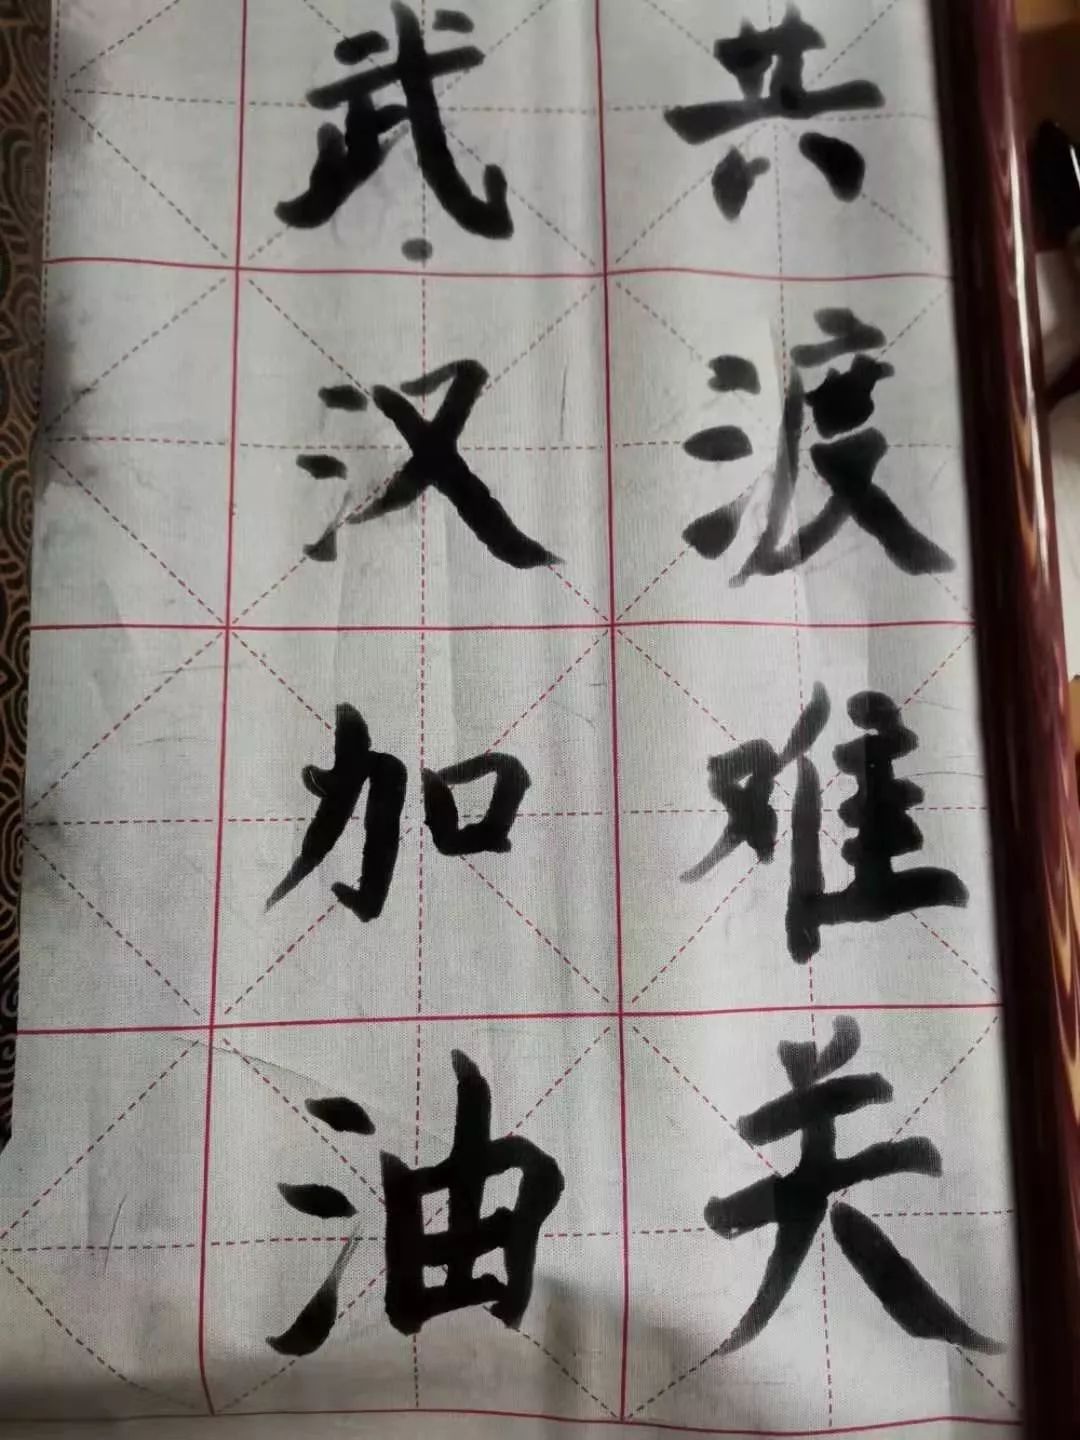 共渡难关
武汉加油